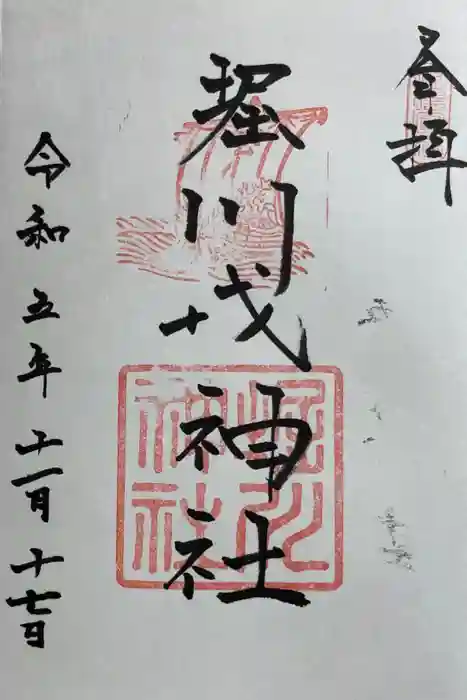 奉拝
堀川戎神社
堀川
神社
令和五年十一月十七日